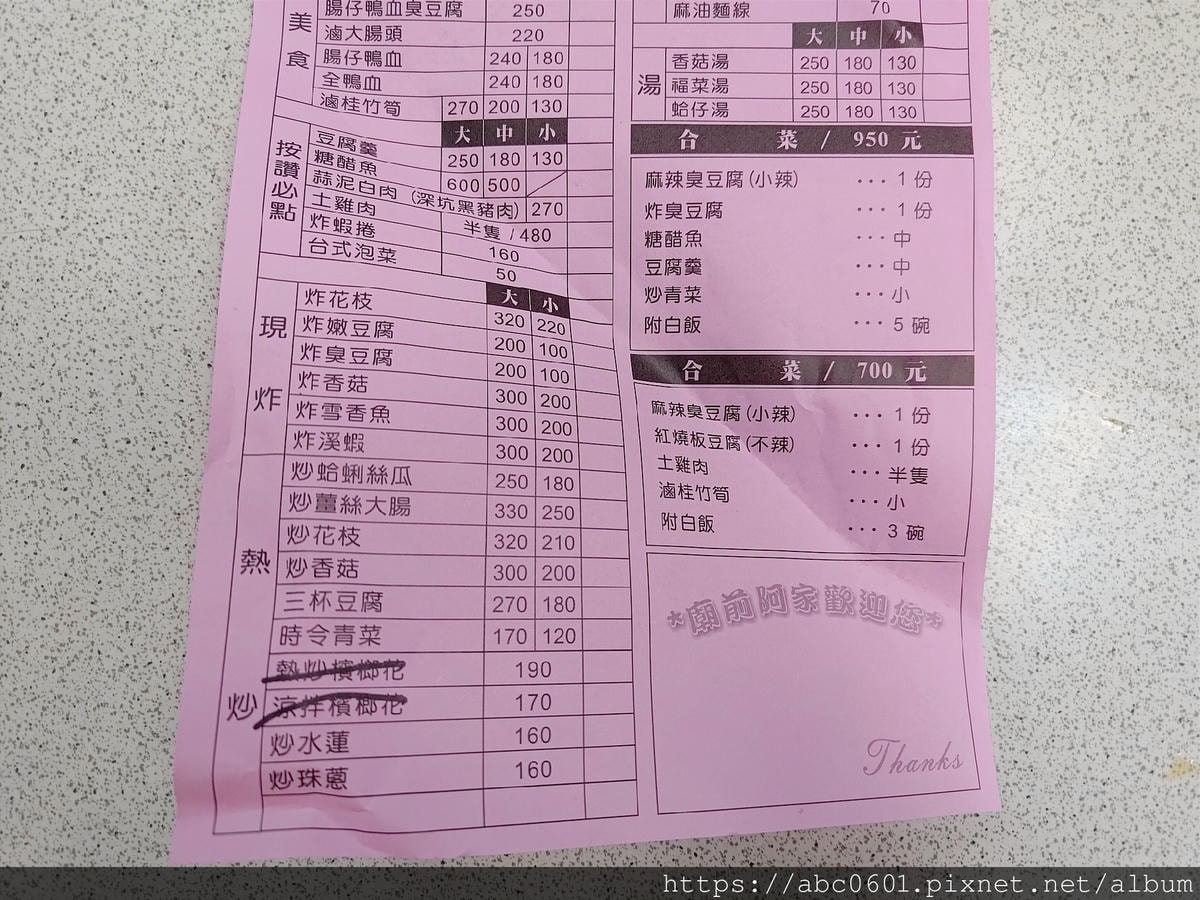 美食
腸仔鴨血臭豆腐 250
滷大腸頭 220
腸仔鴨血 240 180
全鴨血 240 180
滷桂竹筍 270 200 130
按讚必點
大 中 小
豆腐羹 250 180 130
糖醋魚 600 500
蒜泥白肉 (深坑黑豬肉) 270
土雞肉 半隻 / 480
炸蝦捲 160
台式泡菜 50
現炸
大 小
炸花枝 320 220
炸嫩豆腐 200 100
炸臭豆腐 200 100
炸香菇 300 200
炸雪香魚 300 200
炸溪蝦 300 200
熱炒
炒蛤蜊絲瓜 250 180
炒薑絲大腸 330 250
炒花枝 320 210
炒香菇 300 200
三杯豆腐 270 180
時令青菜 170 120
熱炒檳榔花 190
涼拌檳榔花 170
炒水蓮 160
炒珠蔥 160
麻油麵線 70
湯
大 中 小
香菇湯 250 180 130
福菜湯 250 180 130
蛤仔湯 250 180 130
合 菜 / 950 元
麻辣臭豆腐(小辣) ··· 1 份
炸臭豆腐 ··· 1 份
糖醋魚 ··· 中
豆腐羹 ··· 中
炒青菜 ··· 小
附白飯 ··· 5 碗
合 菜 / 700 元
麻辣臭豆腐(小辣) ··· 1 份
紅燒板豆腐(不辣) ··· 1 份
土雞肉 ··· 半隻
滷桂竹筍 ··· 小
附白飯 ··· 3 碗
*廟前阿家歡迎您*
Thanks
https://abc0601.pixnet.net/album